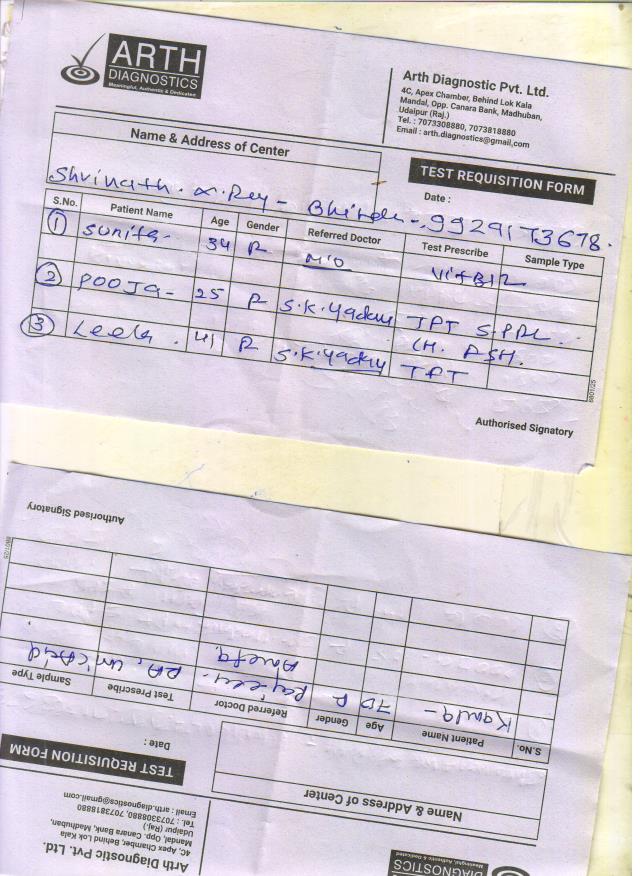 ARTH
DIAGNOSTICS
Meaningful, Authentic & Dedicated
Arth Diagnostic Pvt. Ltd.
4C, Apex Chamber, Behind Lok Kala
Mandal, Opp. Canara Bank, Madhuban,
Udaipur (Raj.)
Tel. : 7073308880, 7073818880
Email : arth.diagnostics@gmail.com
Name & Address of Center
TEST REQUISITION FORM
Date :
Shrinath. X. Rey - Bhinder - 9929173678.
S.No. Patient Name Age Gender Referred Doctor Test Prescribe Sample Type
1 Sunita - 34 F M/O Vit B12
2 Pooja - 25 F S.K. Yadav TFT S. PRL.
LH. FSH.
3 Leela. 41 F S.K. Yadav TFT
6801/25
Authorised Signatory
ARTH
DIAGNOSTICS
Meaningful, Authentic & Dedicated
Arth Diagnostic Pvt. Ltd.
4C, Apex Chamber, Behind Lok Kala
Mandal, Opp. Canara Bank, Madhuban,
Udaipur (Raj.)
Tel. : 7073308880, 7073818880
Email : arth.diagnostics@gmail.com
Name & Address of Center
TEST REQUISITION FORM
Date :
S.No. Patient Name Age Gender Referred Doctor Test Prescribe Sample Type
Kamla - 70 F RA, Uric Acid
Authorised Signatory